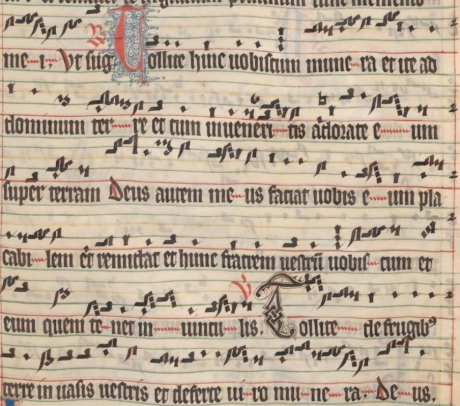 me---i. Ut sug Tollite hinc uobiscum mune--ra et ite ad
dominum ter----re et cum inueneri--tis adorate e----um
super terram Deus autem me--us faciat uobis e----um pla
cabi--lem et remittat et hunc fratrem uestrū uobis--cum et
eum quem te--net in----uincu--lis. Tollite---- de frugibꝰ
terre in uasis uestris et deferte ui--ro mu--ne--ra. De--us.